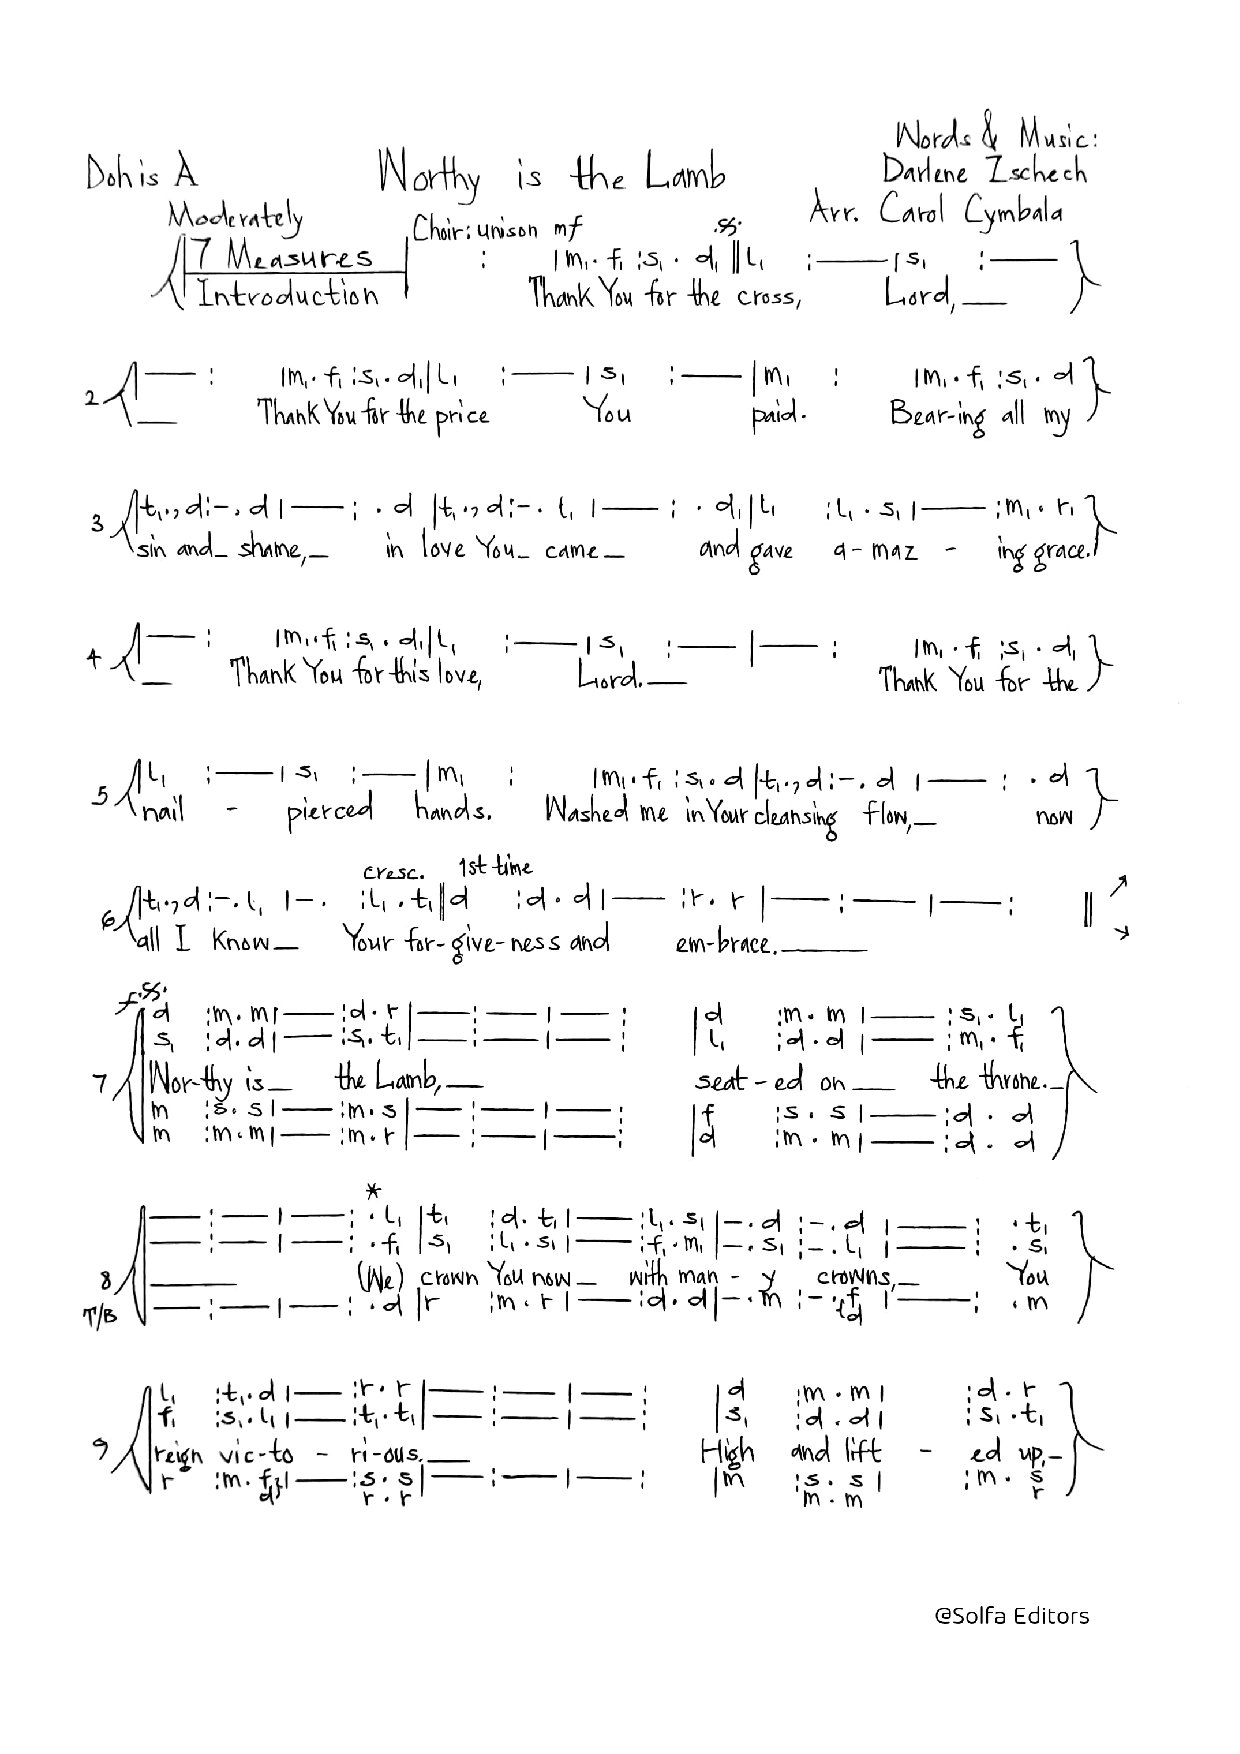 Words & Music:
Doh is A Worthy is the Lamb Darlene Zschech
Moderately Arr. Carol Cymbala
Choir: unison mf .𝄋.
7 Measures : |m₁ . f₁ :s₁ . d₁ ‖l₁ :—|s₁ :—
Introduction Thank You for the cross, Lord,__
2 |— : |m₁ . f₁ :s₁ . d₁|l₁ :—|s₁ :—|m₁ : |m₁ . f₁ :s₁ . d
__ Thank You for the price You paid. Bear-ing all my
3 |t₁.,d:-.d|— : . d |t₁.,d:-. l₁ |— : . d₁|l₁ :l₁ . s₁|— :m₁ . r₁
sin and_ shame,_ in love You_ came_ and gave a-maz - ing grace.
4 |— : |m₁.f₁:s₁ . d₁|l₁ :—|s₁ :—|— : |m₁ . f₁ :s₁ . d₁
__ Thank You for this love, Lord.__ Thank You for the
5 |l₁ :—|s₁ :—|m₁ : |m₁.f₁ :s₁.d|t₁.,d:-. d |— : . d
nail - pierced hands. Washed me in Your cleansing flow,_ now
cresc. 1st time
6 |t₁.,d:-. l₁ |-. :l₁ . t₁‖d :d . d|— :r . r |— :—|— : ‖ ↗ ↘
all I know_ Your for-give-ness and em-brace.____
f .𝄋.
d :m . m|— :d . r|— :—|— : |d :m . m |— :s₁ . l₁
s₁ :d . d|— :s₁ . t₁|— :—|— : |l₁ :d . d |— :m₁ . f₁
7 Wor-thy is_ the Lamb,__ seat-ed on__ the throne._
m :s . s|— :m . s|— :—|— : |f :s . s|— :d . d
m :m . m|— :m . r|— :—|— : |d :m . m|— :d . d
*
— :—|— : . l₁ |t₁ :d . t₁|— :l₁ . s₁|-. d :-. d |— : . t₁
— :—|— : . f₁ |s₁ :l₁ . s₁|— :f₁ . m₁|-. s₁ :-. l₁ |— : . s₁
8 ____ (We) crown You now_ with man - y crowns,_ You
T/B — :—|— : . d |r :m . r |— :d . d|-. m :-. f |— : . m
d
l₁ :t₁ . d|— :r . r|— :—|— : |d :m . m| :d . r
f₁ :s₁ . l₁|— :t₁ . t₁|— :—|— : |s₁ :d . d| :s₁ . t₁
9 reign vic-to - ri-ous.__ High and lift - ed up,_
r :m . f|— :s . s|— :—|— : |m :s . s | :m . s
d r . r m . m r
@Solfa Editors